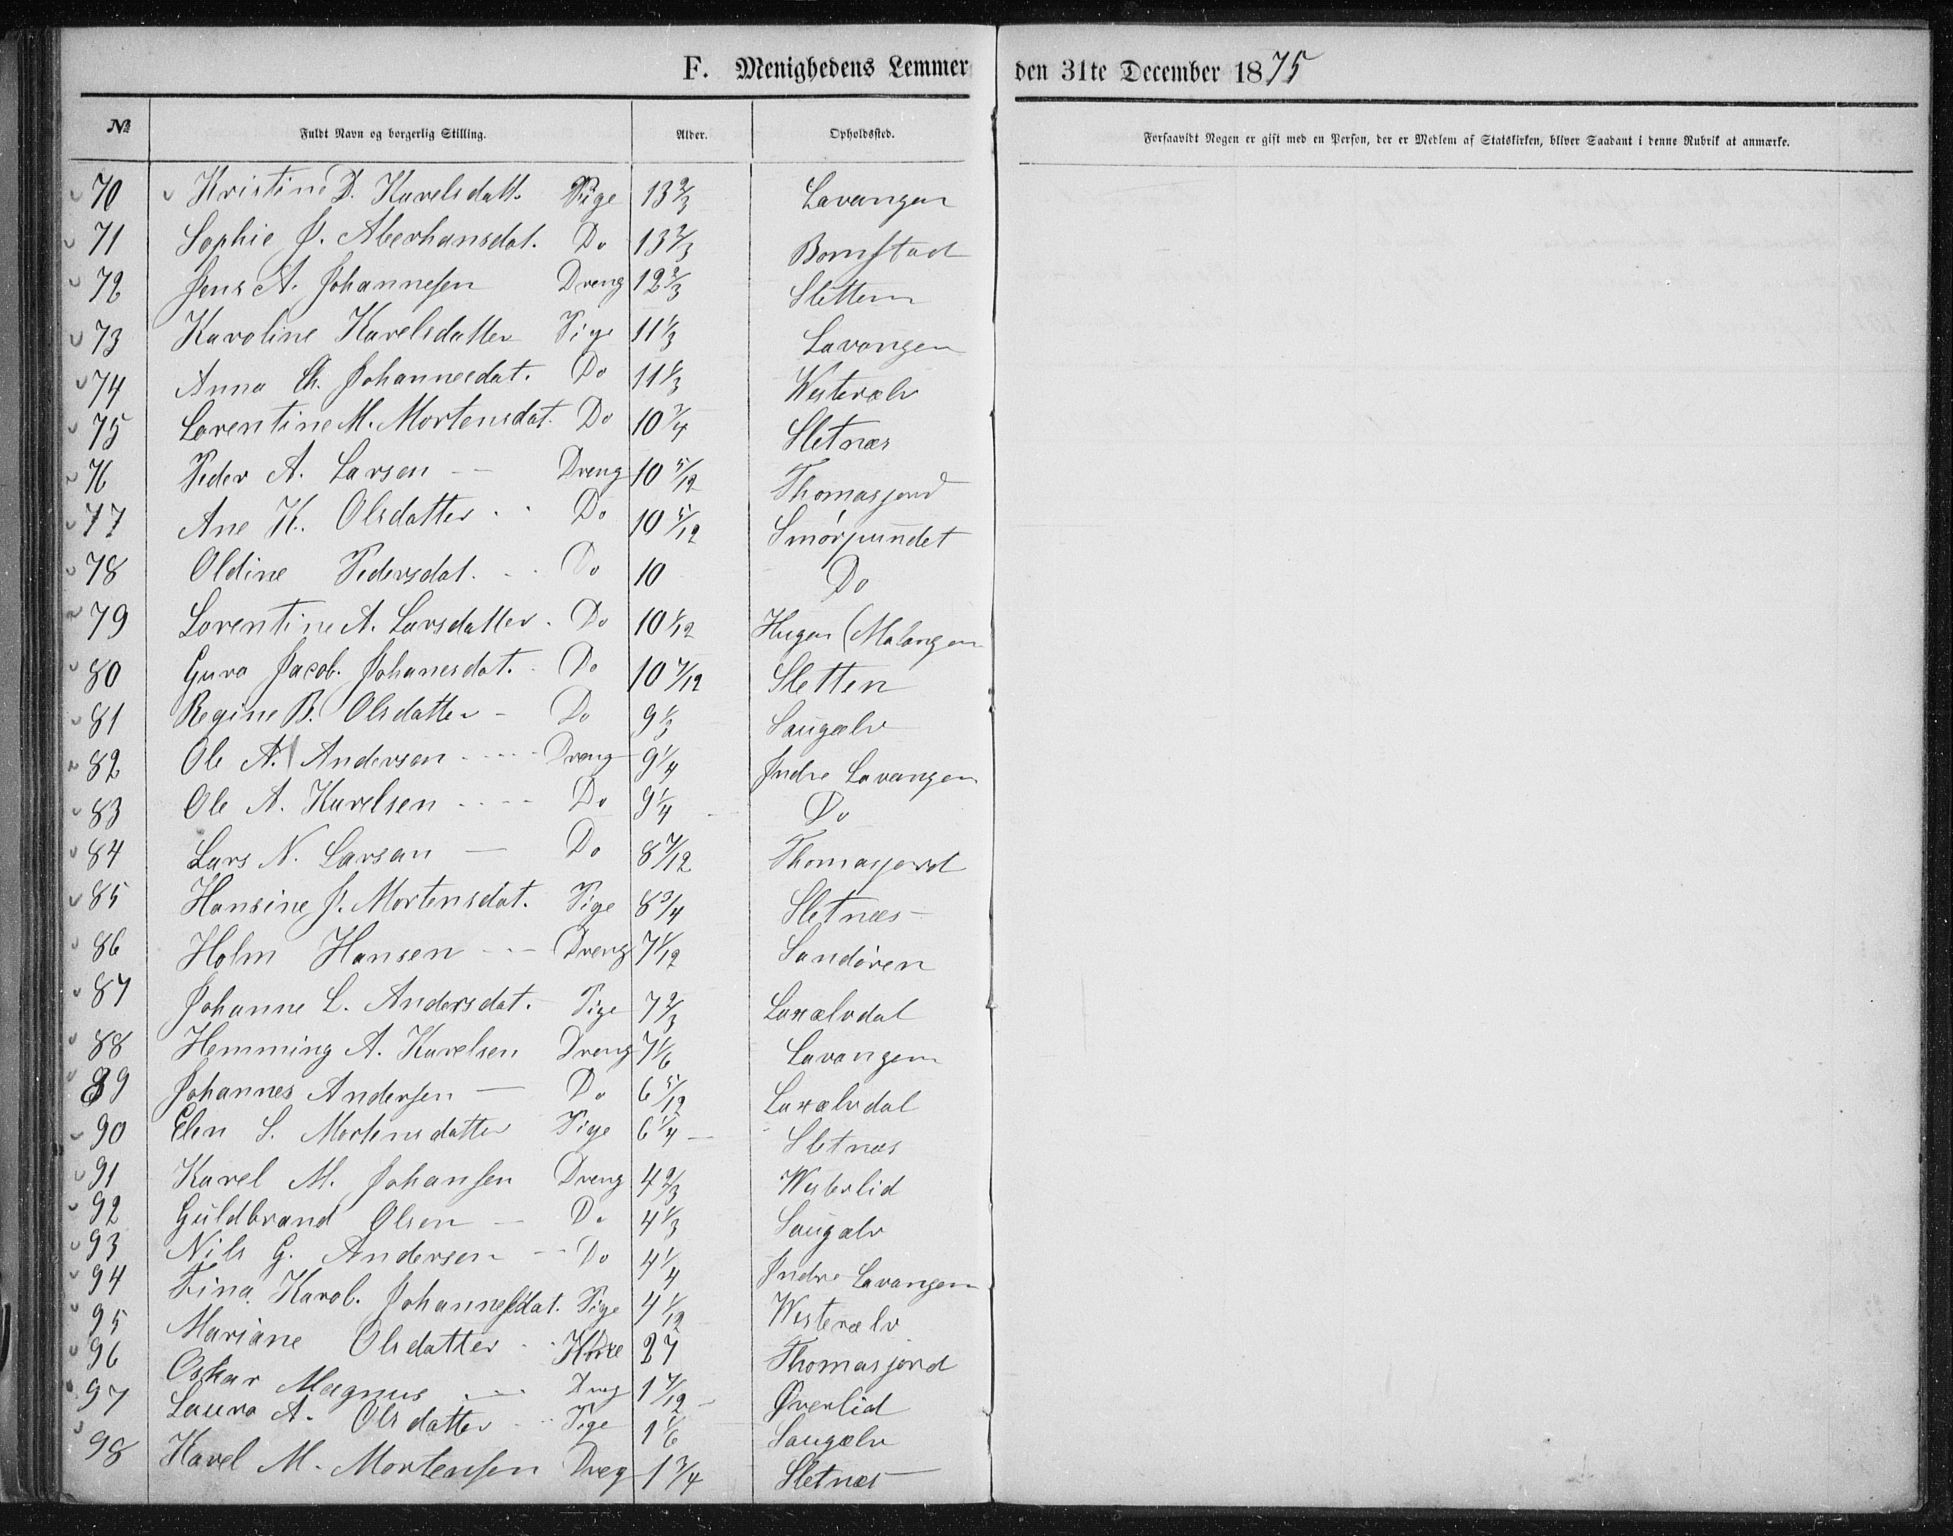 F. Menighedens Lemmer den 31te December 1875
№ Fuldt Navn og borgerlig Stilling. Alder. Opholdssted. Forsaavidt Nogen er gift med en Person, der er Medlem af Statskirken, bliver Saadant i denne Rubrik at anmærke.
70 Kristine D. Karelsdatt. Pige 13 2/3 Lavangen
71 Sophie J. Aberhansdat. Do 13 2/3 Bomstad
72 Jens A. Johannesen Dreng 12 2/3 Sletten
73 Karoline Karelsdatter Pige 11 1/3 Lavangen
74 Anna Ch. Johannesdat. Do 11 1/3 Westerælv
75 Lorentine M. Mortensdat. Do 10 3/4 Sletnæs
76 Peder A. Larsen Dreng 10 5/12 Thomasjord
77 Ane K. Olsdatter Do 10 5/12 Smørpundet
78 Oldine Pedersdat. Do 10 Do
79 Lorentine A. Larsdatter Do 10 1/12 Hugen (Malangen
80 Guro Jacob. Johanesdat. Do 10 7/12 Sletten
81 Regine B. Olsdatter Do 9 1/3 Saugælv
82 Ole A. Andersen Dreng 9 1/4 Indre Lavangen
83 Ole A. Karelsen Do 9 1/4 Do
84 Lars N. Larsen Do 8 7/12 Thomasjord
85 Hansine J. Mortensdat. Pige 8 3/4 Sletnæs
86 Holm Hansen Dreng 7 1/12 Sandøren
87 Johanne L. Andersdat. Pige 7 2/3 Laxælvdal
88 Hemming A. Karelsen Dreng 7 1/6 Lavangen
89 Johannes Andersen Do 6 5/12 Laxælvdal
90 Elen S. Mortensdatter Pige 6 1/4 Sletnæs
91 Karel M. Johansen Dreng 4 2/3 Westerlid
92 Guldbrand Olsen Do 4 1/3 Saugælv
93 Nils G. Andersen Do 4 1/4 Indre Lavangen
94 Fina Karol. Johannesdat. Pige 4 1/12 Westerælv
95 Mariane Olsdatter 27 Thomasjord
96 Oskar Magnus Dreng 1 7/12 Øverlid
97 Laura A. Olsdatter Pige 1 1/6 Saugælv
98 Karel M. Mortensen Dreg 1 3/4 Sletnæs